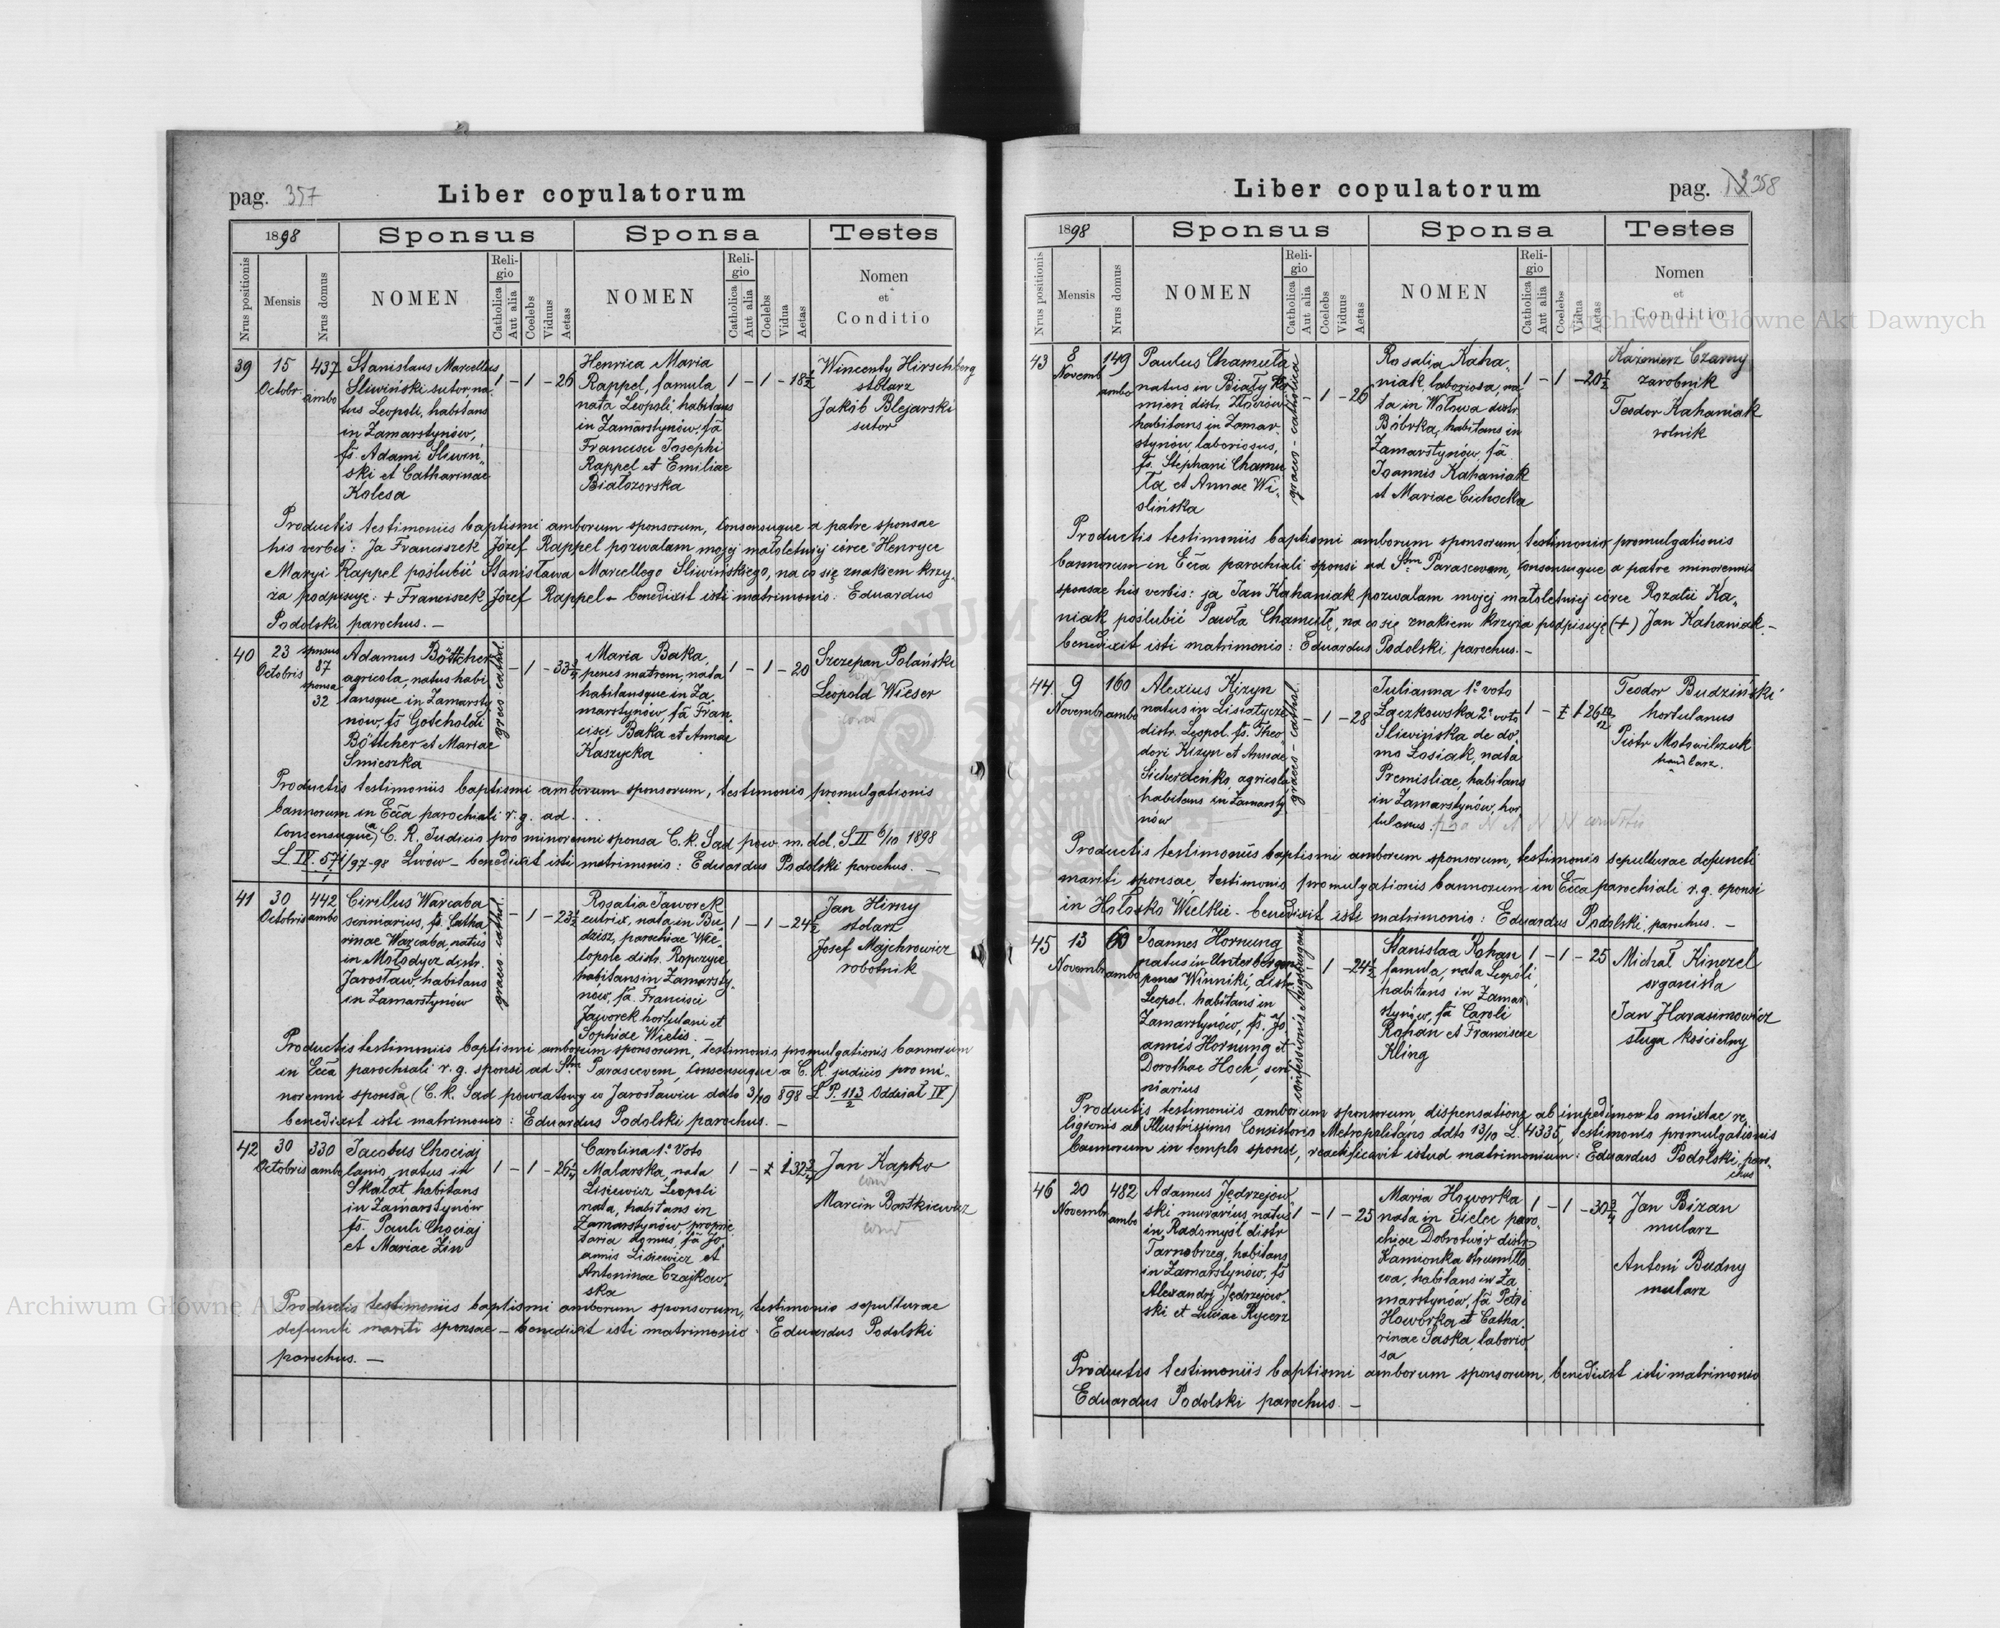 pag. 357
Liber copulatorum
1898
Sponsus
Sponsa
Testes
Nrus positionis
Mensis
Nrus domus
NOMEN
Religio
Catholica
Aut alia
Coelebs
Viduus
Aetas
NOMEN
Religio
Catholica
Aut alia
Coelebs
Vidua
Aetas
Nomen
et
Conditio
39
15
Octobr.
437
ambo
Stanislaus Marcellus
Sliwiński sutor, na-
tus Leopoli, habitans
in Zamarstynów,
fs. Adami Sliwiń-
ski et Catharinae
Kolesa
1 - 1 - 26
Henrica Maria
Rappel, famula
nata Leopoli, habitans
in Zamarstynów, fa
Francisci Josephi
Rappel et Emiliae
Białozorska
1 - 1 - 18 1/2
Wincenty Hirschberg
stolarz
Jakób Blejarski
sutor
Productis testimoniis baptismi amborum sponsorum, consensuque a patre sponsae
his verbis: Ja Franciszek Józef Rappel pozwalam mojej małoletniej córce Henryce
Maryi Rappel poślubić Stanisława Marcellego Sliwińskiego, na co się znakiem krzy-
ża podpisuję: + Franciszek Józef Rappel - benedixit isti matrimonio: Eduardus
Podolski parochus. -
40
23
Octobris
sponsus
87
sponsa
32
Adamus Böttcher
agricola, natus habi-
tansque in Zamarsty-
nów, fs Gotcholdi
Böttcher et Mariae
Smieszka
graeco-cathol.
- 1 - 33 3/4
Maria Baka,
penes matrem, nata
habitansque in Za
marstynów, fa Fran-
cisci Baka et Annae
Kaszycka
1 - 1 - 20
Szczepan Polański
Leopold Wieser
Productis testimoniis baptismi amborum sponsorum, testimonio promulgationis
bannorum in Ecca parochiali r. g. ad . . .
Consensuque a C. R. Judicio pro minorenni sponsa C. k. Sad pow. m. del. S II 6/10 1898
L. IV. 571/97-98 Lwów - benedixit isti matrimonio: Eduardus Podolski parochus. -
41
30
Octobris
442
ambo
Cirillus Warcaba
scriniarius, fs. Catha
rinae Warcaba, natus
in Mołodycz distr.
Jarosław, habitans
in Zamarstynów
graeco-cathol.
- 1 - 23 1/2
Rosalia Jaworek
cutrix, nata in Bu-
dzisz, parochiae Wie-
lopole distr. Ropczyce
habitans in Zamarsty-
nów, fa. Francisci
Jaworek hortulani et
Sophiae Wielis. -
1 - 1 - 24 1/2
Jan Hirny
stolarz
Josef Majchrowicz
robotnik
Productis testimoniis baptismi amborum sponsorum, testimonio promulgationis bannorum
in Ecca parochiali r. g. sponsi ad Stam Parascevem, consensuque a C. R. judicio pro mi-
norenni sponso (C. k. Sad powiatowy w Jarosławiu ddto 3/10 898 L P. 113/2 Oddział IV)
benedixit isti matrimonio: Eduardus Podolski parochus. -
42
30
Octobris
330
ambo
Jacobus Chociaj
lanio, natus in
Skałat habitans
in Zamarstynów
fs. Pauli Chociaj
et Mariae Zin
1 - 1 - 26 3/4
Carolina 1o Voto
Malarska, nata
Lisiewicz Leopoli
nata, habitans in
Zamarstynów, proprie
taria domus, fa Jo
annis Lisiewicz et
Antoninae Czajkow-
ska
1 - 1 32 3/4
Jan Kapko
Marcin Bartkiewicz
Productis testimoniis baptismi amborum sponsorum, testimonio sepulturae
defuncti mariti sponsae - benedixit isti matrimonio: Eduardus Podolski
parochus. -
Liber copulatorum
pag. 358
1898
Sponsus
Sponsa
Testes
Nrus positionis
Mensis
Nrus domus
NOMEN
Religio
Catholica
Aut alia
Coelebs
Viduus
Aetas
NOMEN
Religio
Catholica
Aut alia
Coelebs
Vidua
Aetas
Nomen
et
Conditio
43
8
Novemb
149
ambo
Paulus Chamuła
natus in Biały Ka
mień distr. Złoczów
habitans in Zamar-
stynów, laboriosus,
fs. Stephani Chamu
ła et Annae Wi-
slińska
graeco-catholica
- 1 - 26
Rosalia Kaha-
niak, laboriosa, na
ta in Wołowa distr
Bóbrka, habitans in
Zamarstynów, fa
Joannis Kahaniak
et Mariae Cichocka
1 - 1 - 20 1/2
Kaźmierz Czarny
zarobnik
Teodor Kahaniak
rolnik
Productis testimoniis baptismi amborum sponsorum, testimonio promulgationis
bannorum in Ecca parochiali sponsi ad Stam Parascevem, consensuque a patre minorennis
sponsae his verbis: ja Jan Kahaniak pozwalam mojej małoletniej córce Rozalii Ka-
niak poślubić Pawła Chamułę, na co się znakiem krzyża podpisuję (+) Jan Kahaniak -
benedixit isti matrimonio: Eduardus Podolski parochus. -
44.
9
Novembr
160
ambo
Alexius Kizyn
natus in Lisiatycze
distr. Leopol. fs. Theo
dori Kizyn et Annae
Sicherdenko, agricola
habitans in Zamarsty
nów
graeco-cathol.
- 1 - 28
Julianna 1o voto
Łączkowska 2o voto
Sliwińska de do-
mo Łosiak, nata
Premisliae, habitans
in Zamarstynów, hor
tulanus.
1 - 1 26 10/12
Teodor Budziński
hortulanus
Piotr Motowilczuk
handlarz.
Productis testimoniis baptismi amborum sponsorum, testimonio sepulturae defuncti
mariti sponsae, testimonio promulgationis bannorum in Ecca parochiali r. g. sponsi
in Hołosko Wielkie - benedixit isti matrimonio: Eduardus Podolski, parochus. -
45
13
Novembr
60
ambo
Joannes Hornung
natus in Unterbergen
penes Winniki, distr
Leopol. habitans in
Zamarstynów, fs. Jo
annis Hornung et
Dorothae Hoch, scri
niarius
1 - 24 1/2
Stanislaa Rohan
famula, nata Leopoli,
habitans in Zamar
stynów, fa Caroli
Rohan et Franciscae
Kling
1 - 1 - 25
Michał Kinczel
organista
Jan Harasimowicz
sługa kościelny
Productis testimoniis amborum sponsorum dispensatione ab impedimento mixtae re
ligionis ab Illustrissimo Consistorio Metropolitano ddto 13/10 L. 4335, testimonio promulgationis
bannorum in templo sponsi, reactificavit istud matrimonium: Eduardus Podolski paro-
chus
46
20
Novembr
482
ambo
Adamus Jędrzejow-
ski murarius, natus
in Radomyśl distr
Tarnobrzeg, habitans
in Zamarstynów, fs
Alexandri Jędrzejow-
ski et Luciae Rycerz
1 - 1 - 25
Maria Howorka
nata in Sielec paro-
chiae Dobrotwór distr
Kamionka strumiło
wa, habitans in Za
marstynów, fa Petri
Howorka et Catha-
rinae Saska, laborio
sa
1 - 1 - 30 3/4
Jan Bizan
mularz
Antoni Budny
mularz
Productis testimoniis baptismi amborum sponsorum, benedixit isti matrimonio
Eduardus Podolski parochus. -
Archiwum Główne Akt Dawnych
Archiwum Główne Akt Dawnych